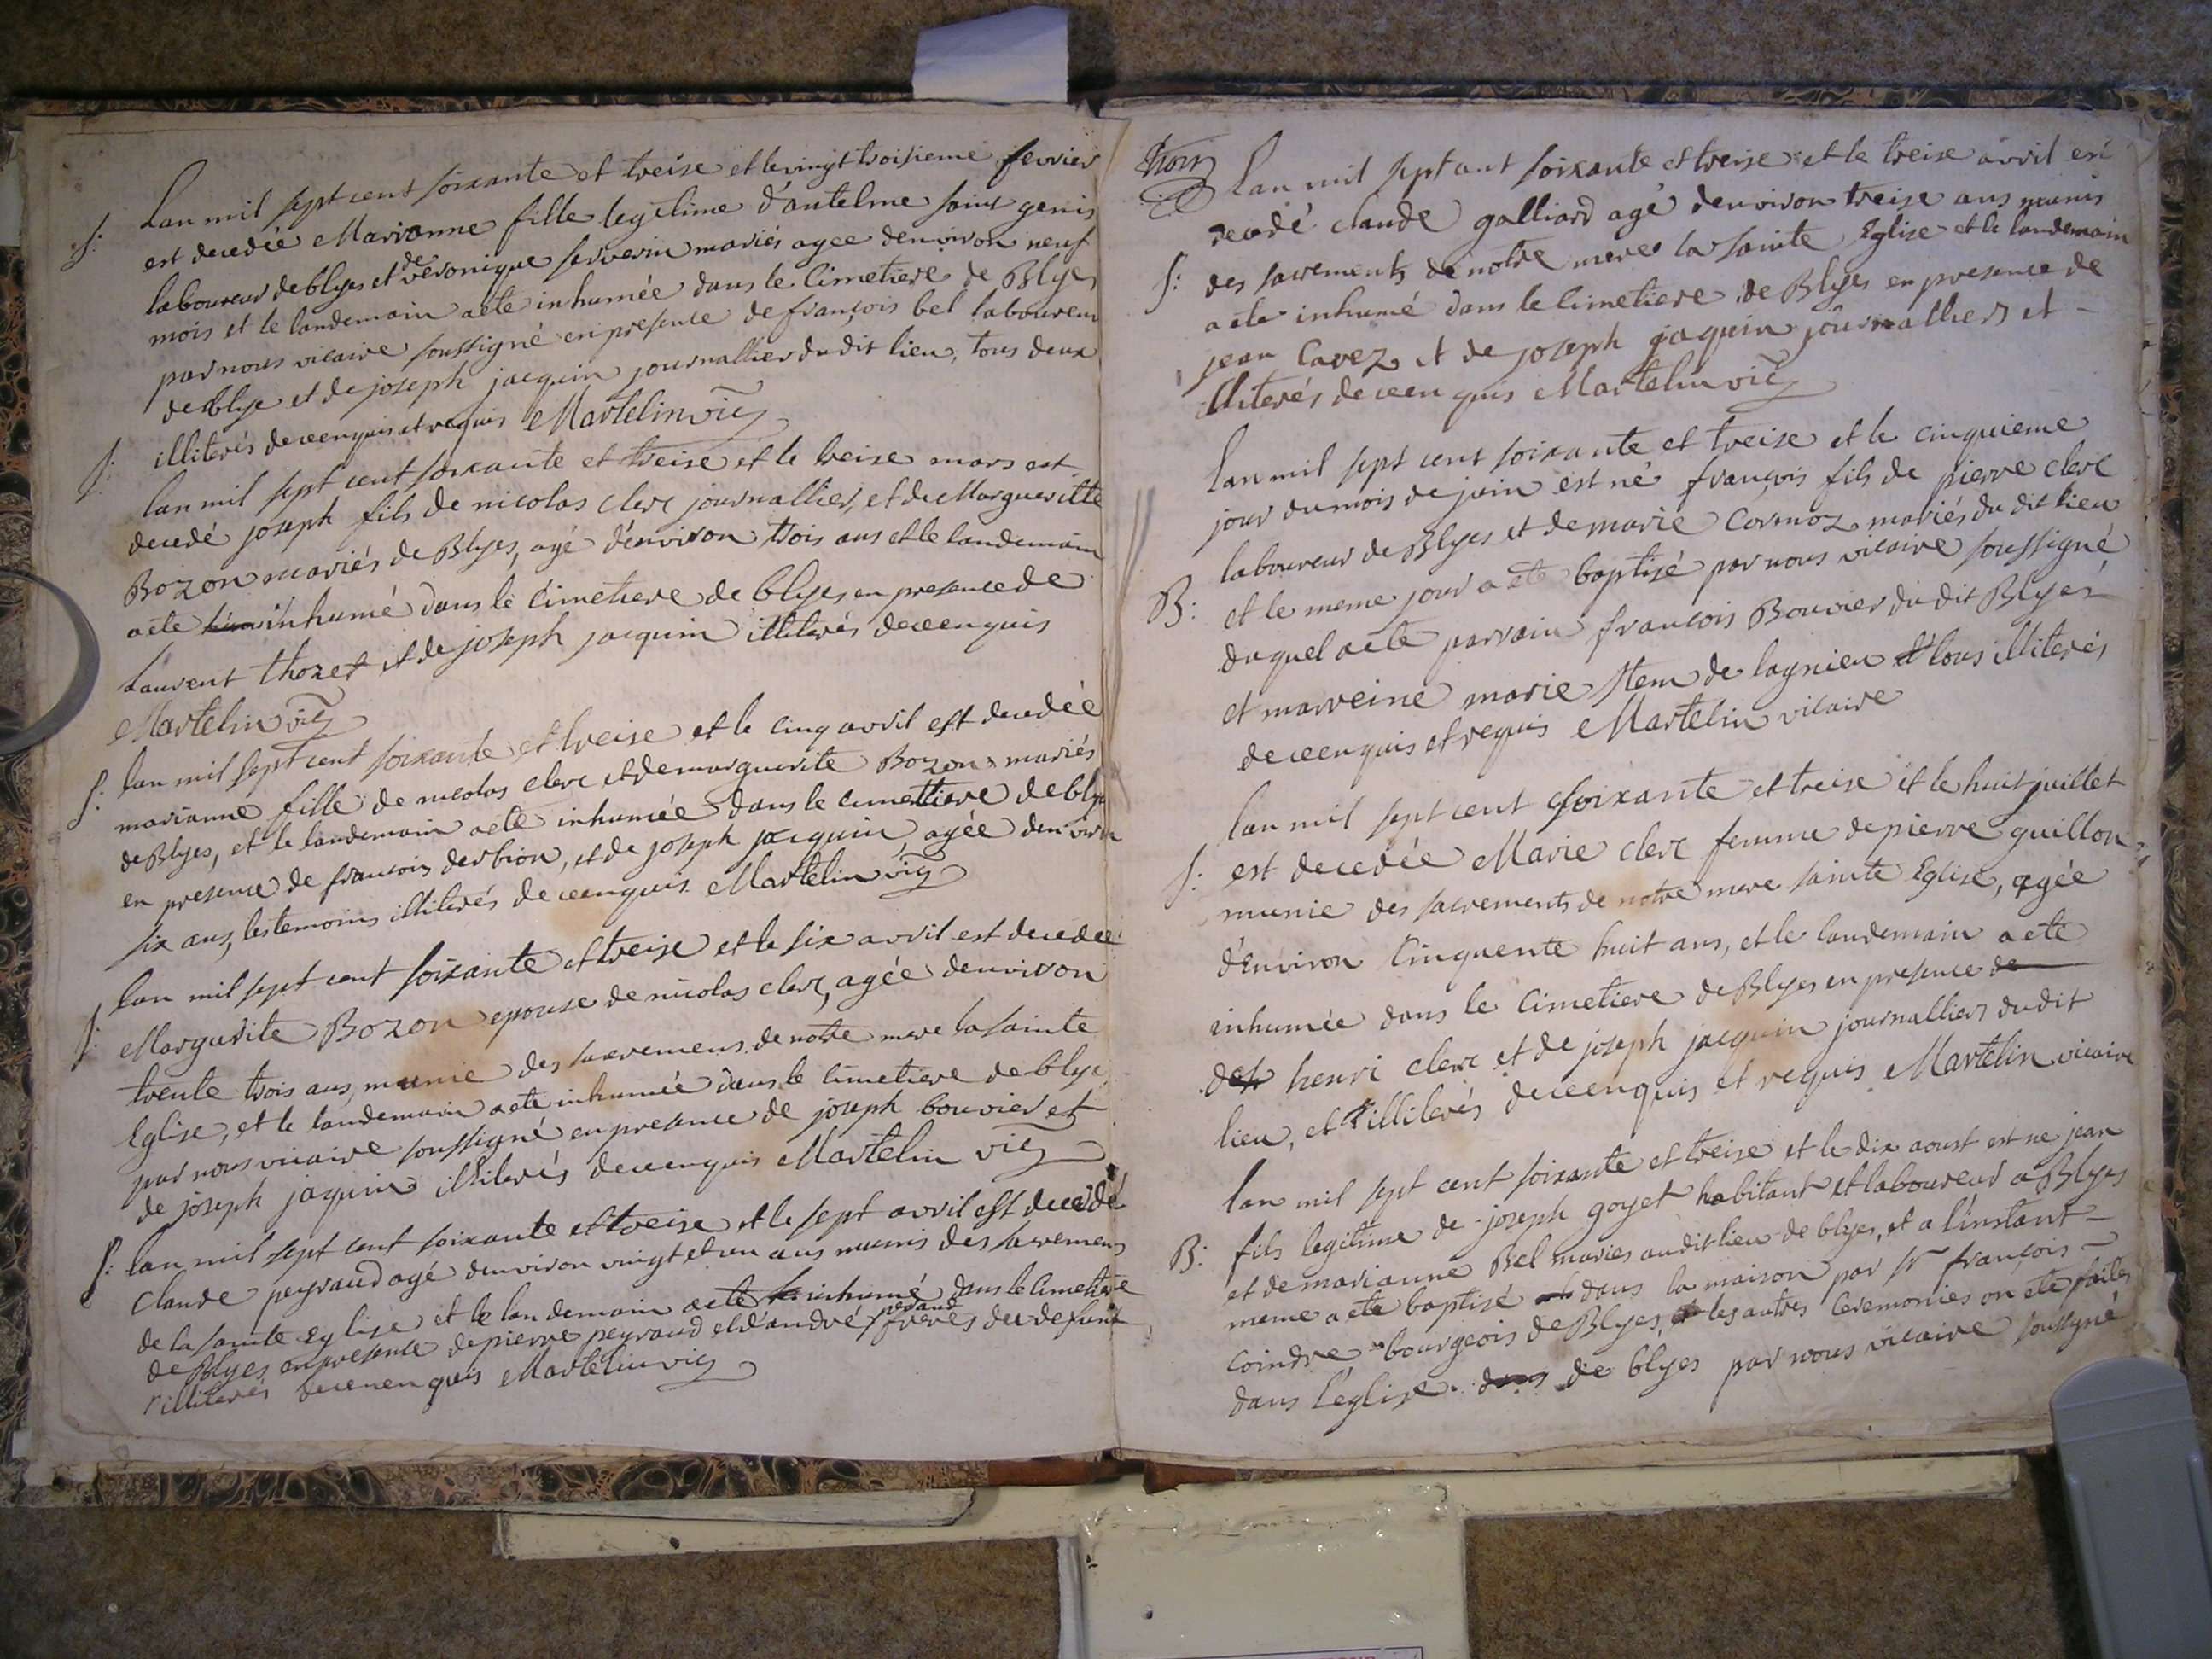 S:
Lan mil sept cent soixante et treise et le vingt troisieme fevrier
est decedée Marianne fille legitime d'antelme saint genis
laboureur de blyes et de veronique serverin mariés agee denviron neuf
mois et le landemain a ete inhumée dans le Cimetiere de Blyes
par nous vicaire soussigné en presence de françois bel laboureur
de blye et de joseph jacquin journallier du dit lieu, tous deux
illiterés de ce enquis et requis Martelin vic̃
S:
lan mil sept cent soixante et treise et le treise mars est
decedé joseph fils de nicolas clerc journallier, et de Margueritte
Bozon mariés de Blyes, agé d'environ trois ans et le landemain
a ete inhumé dans le Cimetiere de blyes en presence de
Laurent thozet et de joseph jacquin illiterés de ce enquis
Martelin vic̃
S: lan mil sept cent soixante et treise et le cinq avril est decedée
marianne fille de nicolas clerc et de marguerite Bozon mariés
de Blyes, et le landemain a ete inhumée dans le cimettiere de blye
en presence de francois derbion, et de joseph jacquin, agée denviron
six ans, les temoins illiterés de ce enquis Martelin vic̃
lan mil sept cent soixante et treise et le six avril est decedée
S: Marguerite Bozon epouse de nicolas clerc, agée denviron
trente trois ans, munie des sacremens de notre mere la sainte
Eglise, et le landemain a ete inhumée dans le cimetiere de blye
par nous vicaire soussigné en presence de joseph bouvier et
de joseph jaquin illiterés de ce enquis Martelin vic̃
S: lan mil sept cent soixante et treise et le sept avril est decedé
Claude peyraud agé denviron vingt et un ans munis des sacremens
de la sainte Eglise et le landemain a ete inhumé dans le Cimetiere
de Blyes en presence de pierre peyraud et d'andré peraud freres du defunt
illiterés de ce enquis Martelin vic̃
trois
Lan mil sept cent soixante et treise et le treise avril est
decedé claude galliard agé denviron treise ans munis
S: des sacrements de notre mere la sainte Eglise et le landemain
a ete inhumé dans le Cimetiere de Blyes en presence de
jean Cavez et de joseph jaquin journalliers et -
illiterés de ce enquis Martelin vic̃
Lan mil sept cent soixante et treise et le cinquieme
jour du mois de juin est né françois fils de pierre clerc
laboureur de Blyes et de marie Cormoz mariés du dit lieu
B: et le meme jour a ete baptisé par nous vicaire soussigné
duquel a ete parrain françois Bouvier du dit Blyes
et marreine marie Stem de lagnieu tous illiterés
de ce enquis et requis Martelin vicaire
lan mil sept cent soixante et treise et le huit juillet
S: est decedée Marie clerc femme de pierre guillon
munie des sacrements de notre mere sainte Eglise, agée
d'environ Cinquente huit ans, et le landemain a ete
inhumée dans le Cimetiere de Blyes en presence de
henri clerc et de joseph jacquin journalliers du dit
lieu, et illiterés de ce enquis et requis Martelin vicaire
lan mil sept cent soixante et treise et le dix aoust est ne jean
B: fils legitime de joseph goyet habitant et laboureur a Blyes
et de marianne Bel maries au dit lieu de blyes, et a l'instant -
meme a ete baptisé dans la maison par sr françois -
Coindre bourgeois de Blyes, les autres Ceremonies on ete faites
dans l'eglise de blyes par nous vicaire soussigné